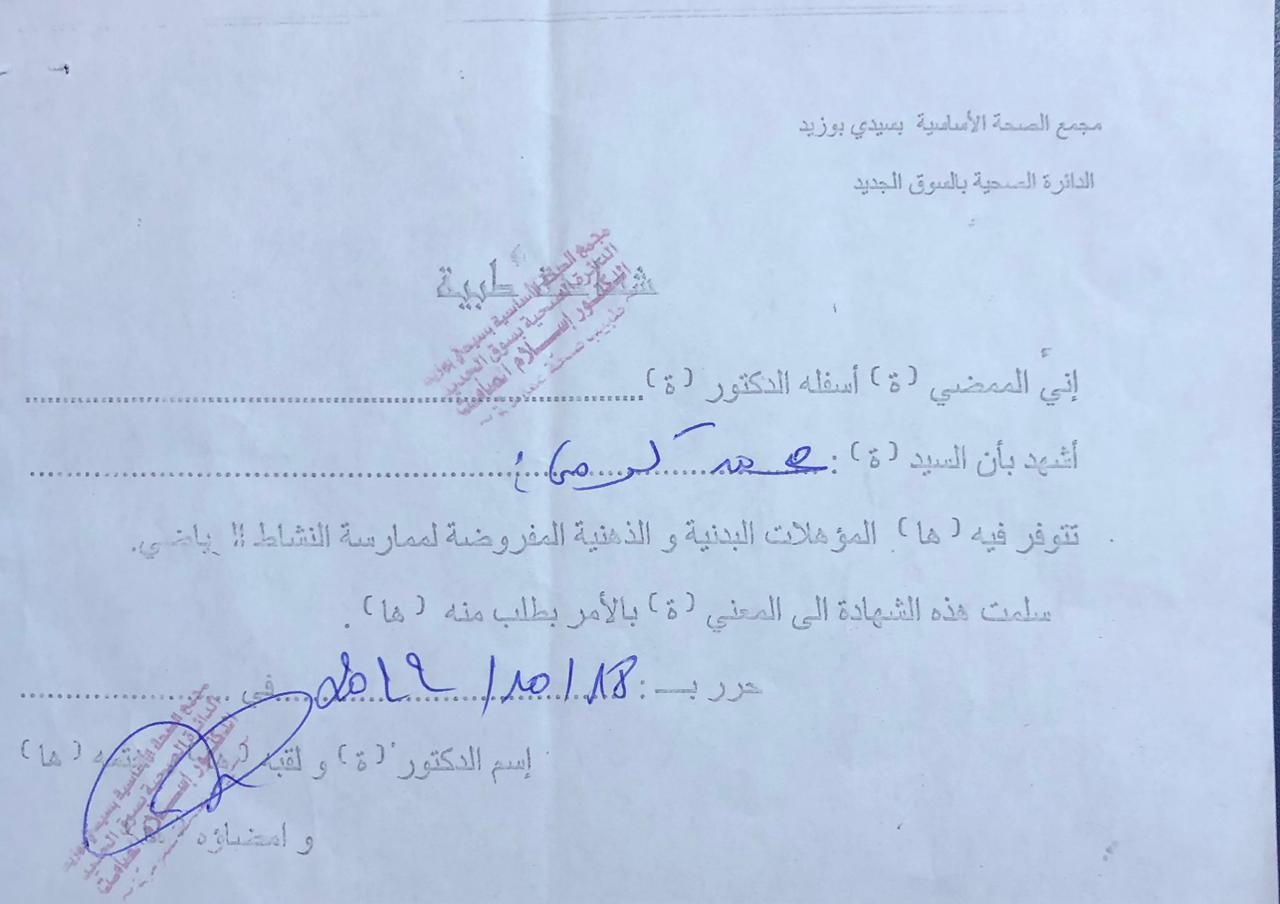 مجمع الصحة الأساسية بسيدي بوزيد
الدائرة الصحية بالسوق الجديد
شهادة طبية
مجمع الصحة الأساسية بسيدي بوزيد
الدائرة الصحية بسوق الجديد
الدكتور إسلام
طبيب صحة عمومية
إنيّ الممضي (ة) أسفله الدكتور (ة)
أشهد بأن السيد (ة) : محمد
تتوفر فيه (ها) المؤهلات البدنية و الذهنية المفروضة لممارسة النشاط الرياضي.
سلمت هذه الشهادة الى المعني (ة) بالأمر بطلب منه (ها) .
حرر بـ : 18/10/ في
إسم الدكتور (ة) و لقبه (ها) ختمه (ها)
و امضاؤه (ها)
مجمع الصحة الأساسية بسيدي بوزيد
الدائرة الصحية بسوق الجديد
الدكتور إسلام